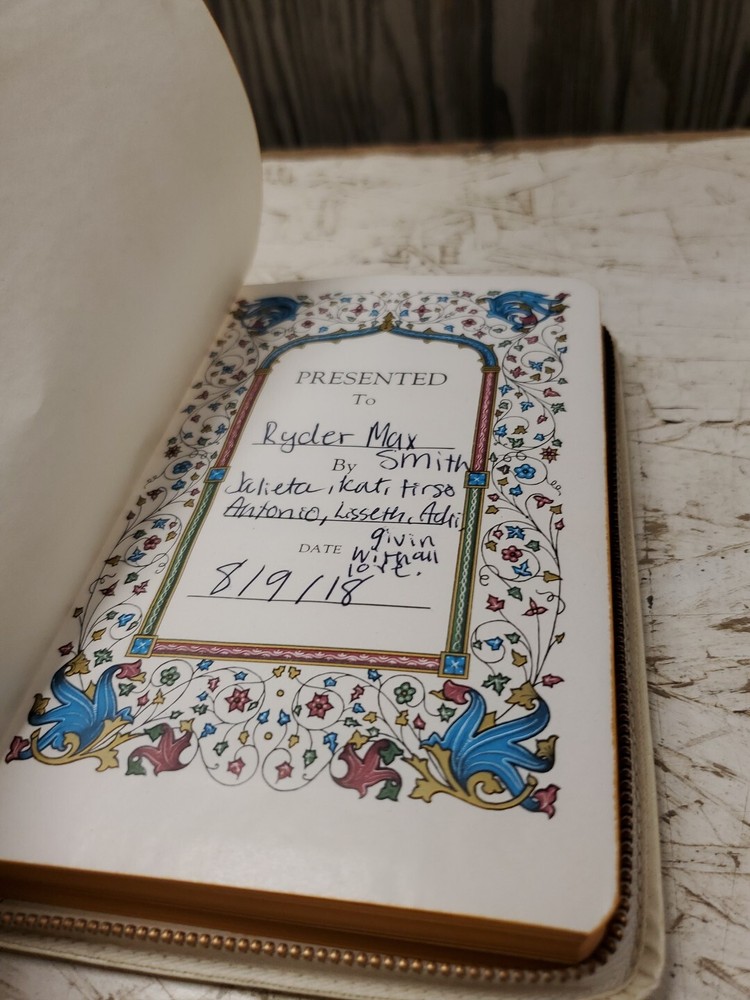 PRESENTED
To
Ryder Max
Smith
By
Julieta, Kat, Tirso
Antonio, Lisseth, Adri,
givin
with all
love.
DATE
8/9/18